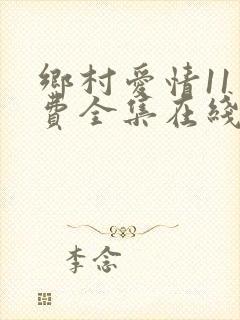 鄉村愛情11
費全集在綫
李念